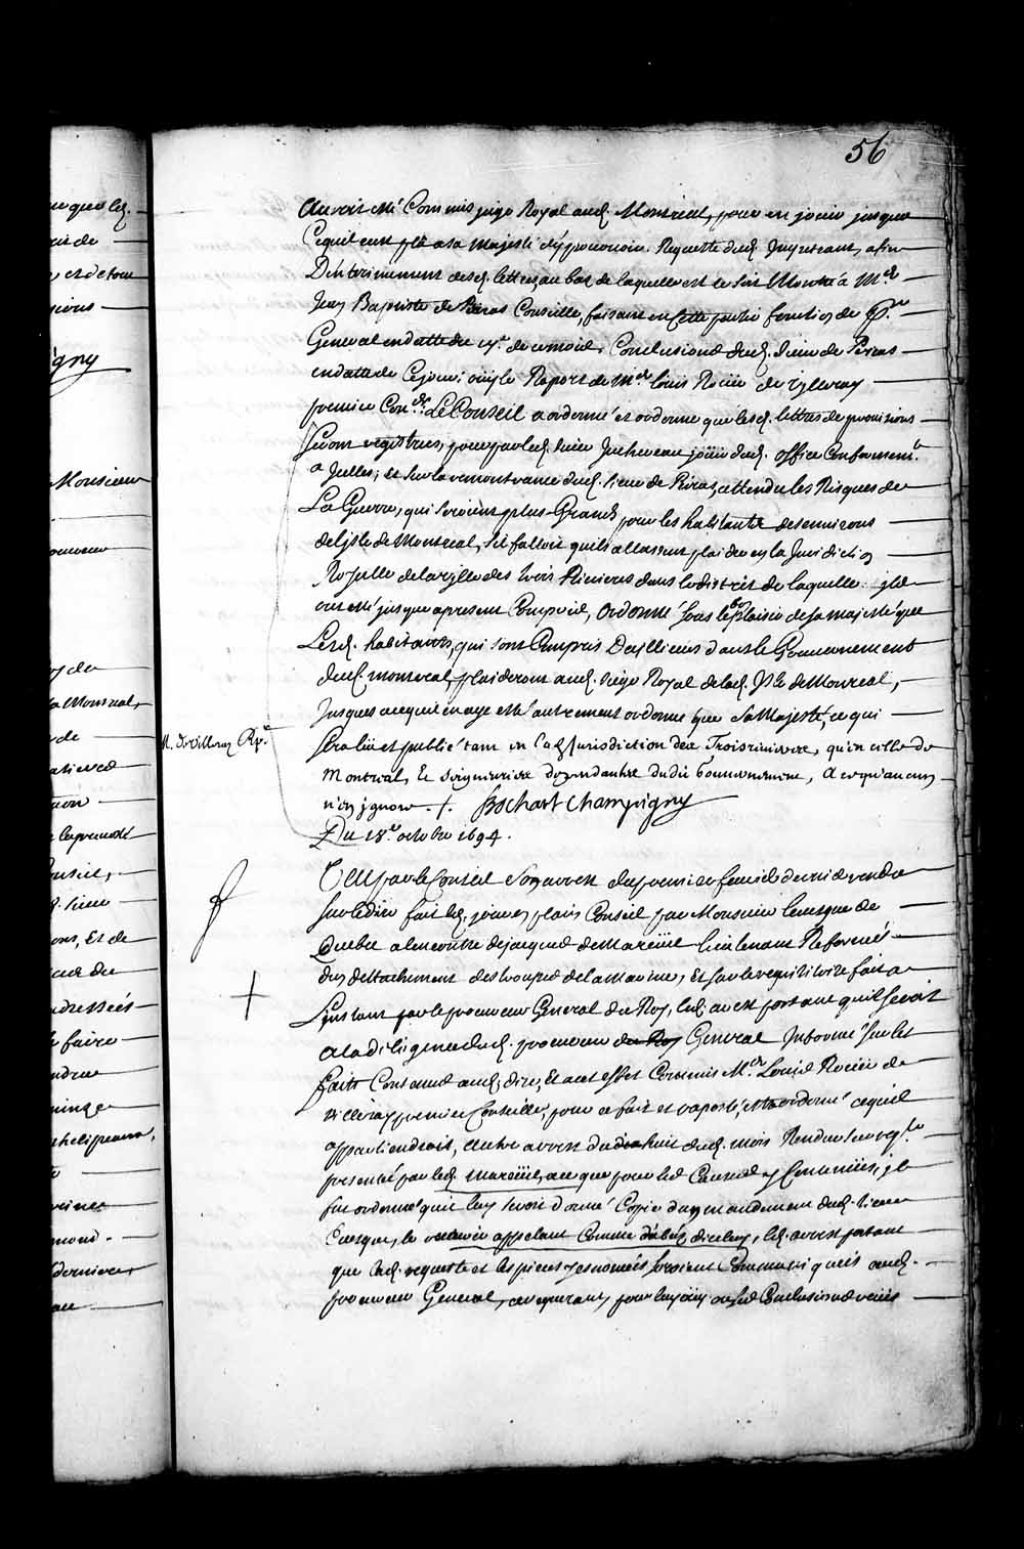 56
auroit esté Commis juge Royal aud. Montreal, pour en jouir jusque
Cequil eust plû a sa Majesté d'y pourvoir. Requeste dud. Juchereau, afin
D'enterinement desd. lettres, au bas de laquelle est le soit Montré à Me
Jean Baptiste de Peiras Conseiller, faisant en cette partie fonction de Pr
General en datte du de ce mois, Conclusions dud. Sieur de Peiras
en datte de Cejour: ouy le Raport de Me Louis Roüer de Villeray
premier Coner. Le Conseil a ordonné et ordonne que lesd. lettres de provisions
seront registrées, pour par led. sieur Juchereau jouïr dud. office Conformemt
a Jcelles; et sur la remontrance dud. sieur de Peiras, attendu les Risques de
La Guerre, qui seroient plus Grands pour les habitants des environs
de lisle de Montreal, s'il falloit quils allassent plaider en la Jurisdiction
Royalle de la ville des trois Rivieres dans le district de laquelle ils
ont esté jusque apresent Compris, ordonne sous le bon plaisir de sa majesté que
Lesd. habitants, qui sont Compris Dailleurs dans le Gouvernement
dud. montreal, plaideront aud. siege Royal de lad. Isle de Montreal,
Jusques acequil en aye esté autrement ordonné par Sa Majesté, ce qui
M. de Villeray Rp.r
sera lû et publié tant en lad. Jurisdiction des Trois rivieres, qu'en celle de
Montreal, et Seigneuries dependantes dudit Gouvernement, a ce qu'aucun
n'en ignore. Bochart Champigny
Du 18e octobre 1694.
Veu par le Conseil son arrest du premier fevrier dernier rendu
sur le dire fait led. jour en plain Conseil par Monsieur levesque de
Quebec a lencontre de jacques de Mareüil lieutenant Reformé
du dettachement des troupes de la marine, Et sur le requisitoire fait a
L'instant par le procureur General du Roy, led. arrest portant quil seroit
a la diligence dud. procureur du Roy General Informé sur les
faits Contenus aud. dire, Et a cet effet Commis Me. Louis Roüer de
Villeray premier Conseiller, pour ce fait et raporté, estre ordonné cequil
appartiendroit, autre arrest du dud. mois Rendu sur reqte
presentée par led. Mareüil, ace que pour les Causes y Contenües, il
fut ordonné qu'il luy seroit donné Copie du mandement dud. sieur
Evesque, le recevoir appellant Comme d'abus diceluy, led. arrest portant
que lad. requeste et les pieces y enoncées seroient Communiquées aud.
procureur General, ce requerant, pour luy ouy ou ses Conclusions veües